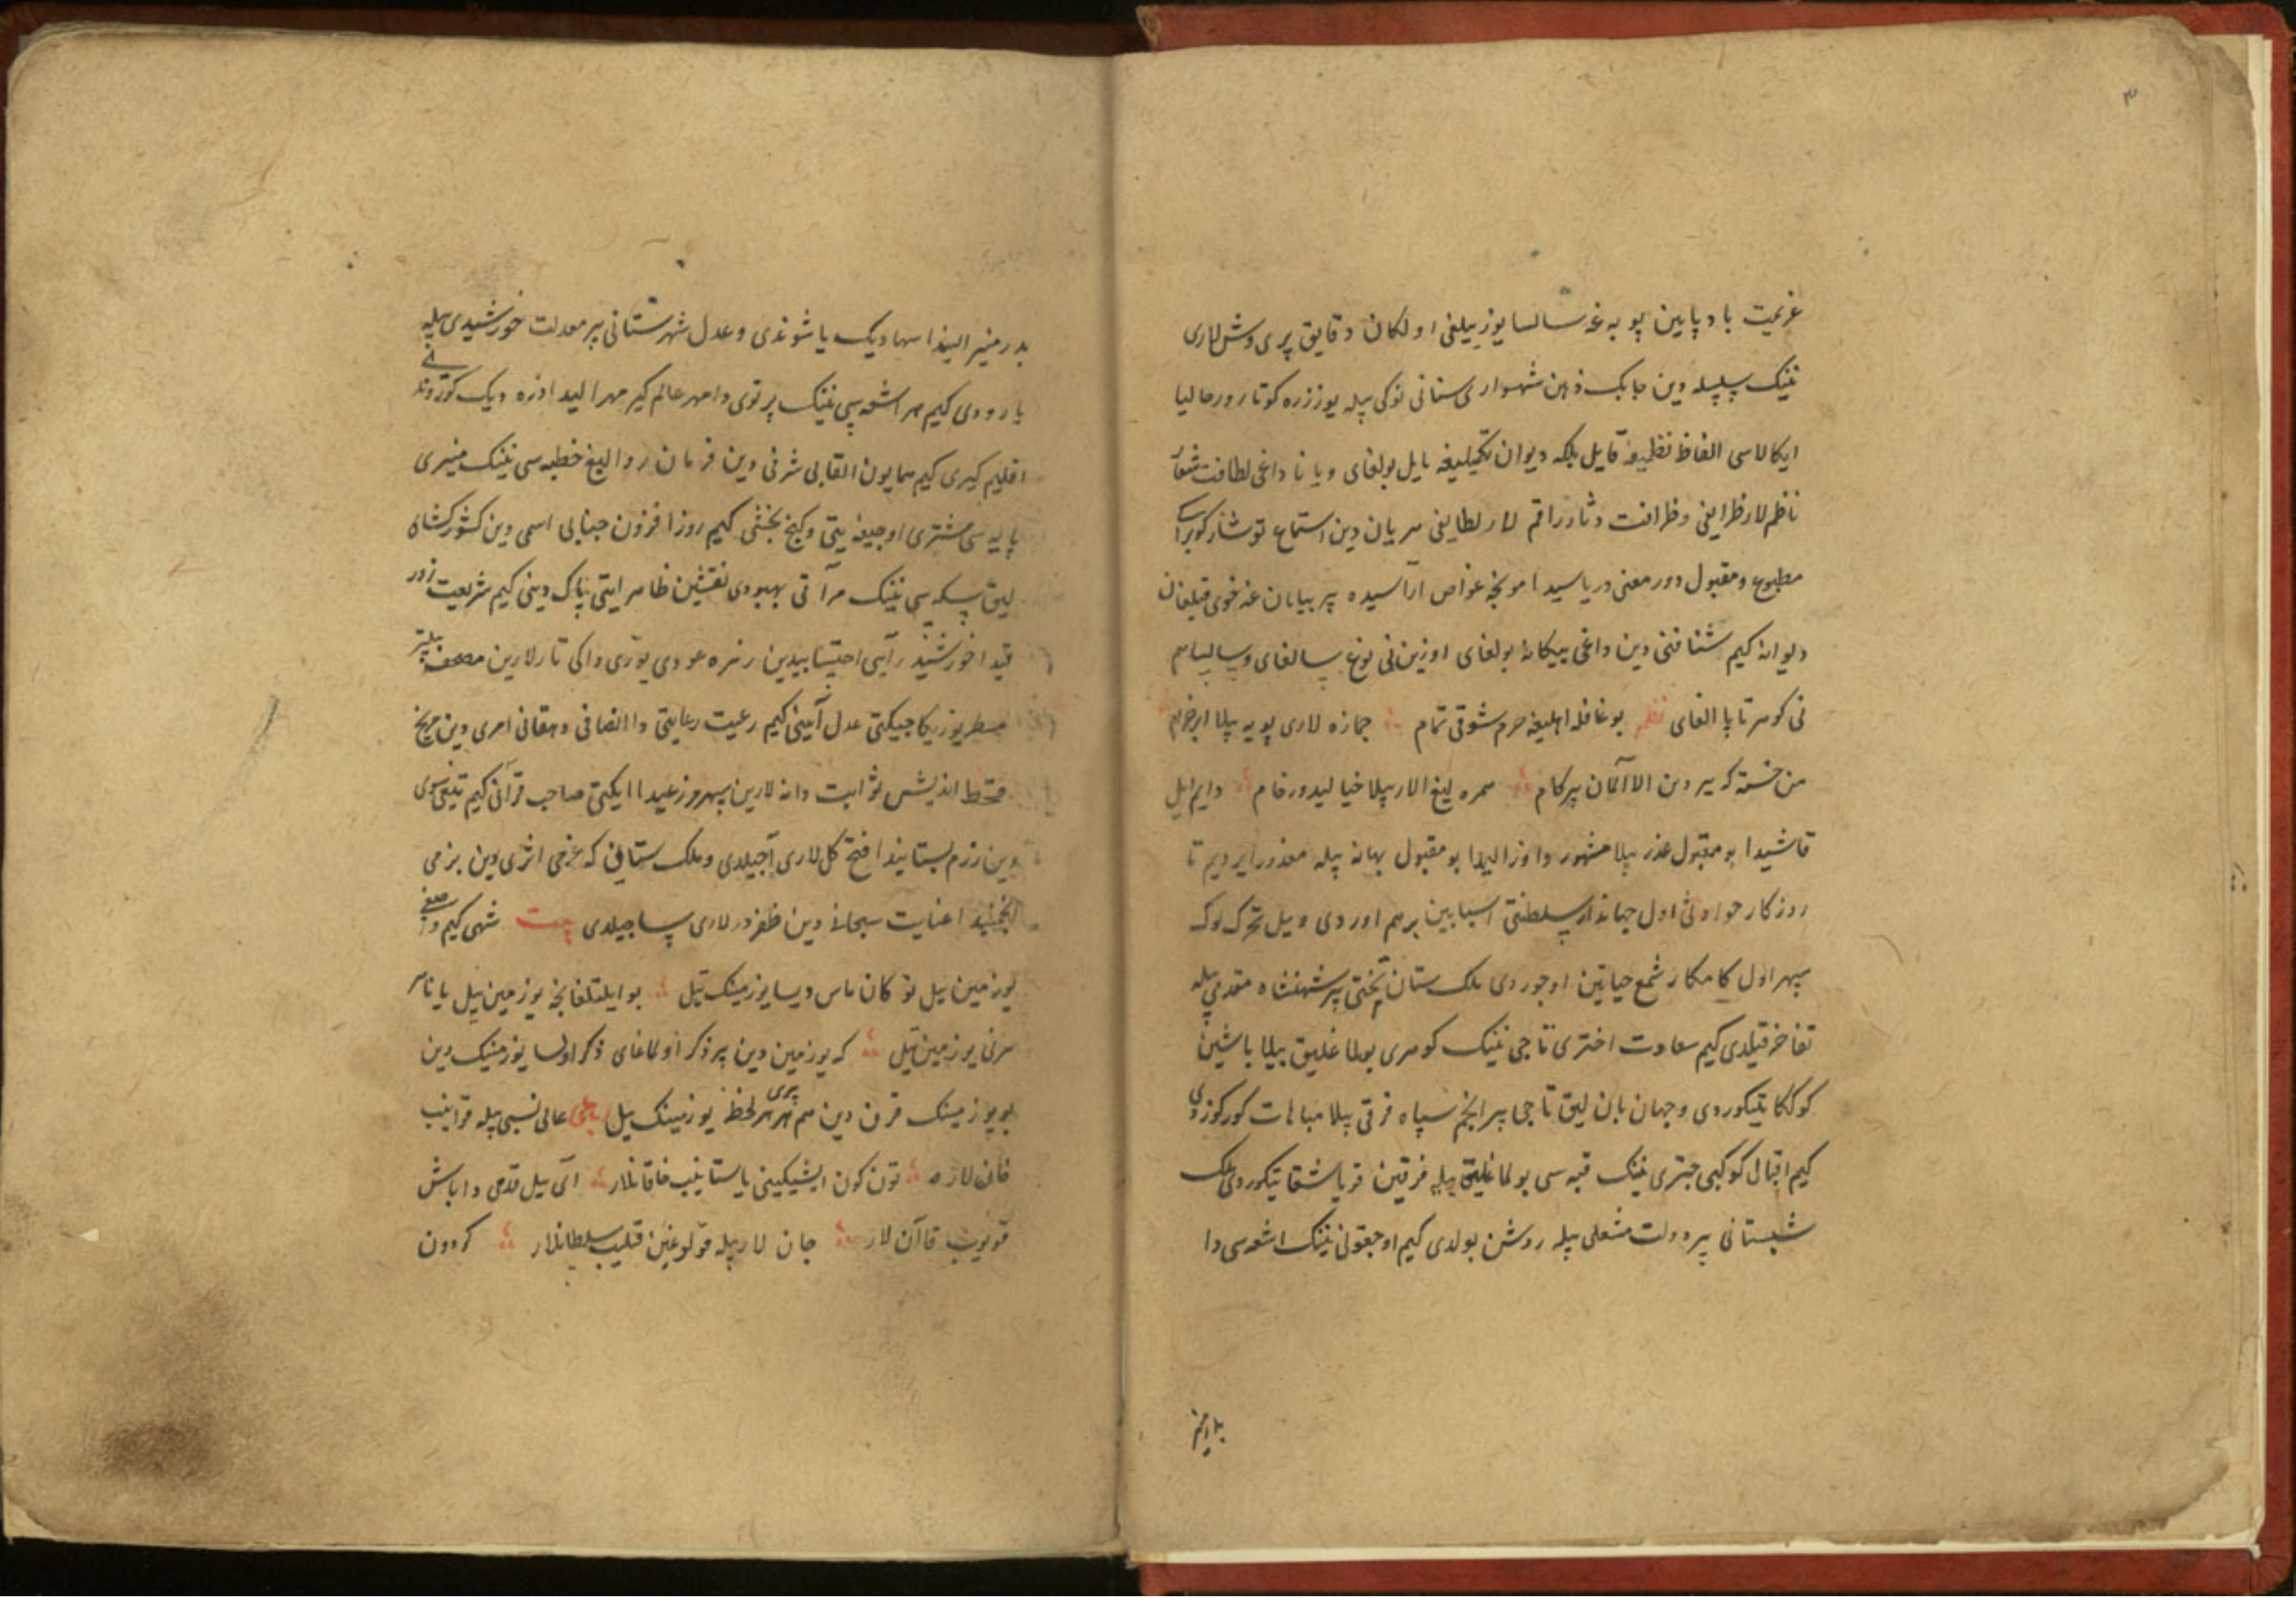 ۳
عزیمت بادپایین پویه غه سالسا یوز ییلغی اولکان دقایق پری وش لاری
نینک سلسله دین چابک ذهن شهسواری سنانی نوکی بیله یوز زره کوتارور حالیا
ایکالاسی الفاظ نظمیغه قایل بلکه دیوان تکمیلیغه مایل بولغای و یانا داغی لطافت شعار
ناظم لار ظرایفی و ظرافت دثار راقم لار لطایفی هر یان دین استماع توشار کوبراک
مطبوع و مقبول دور معنی دریاسیدا مونچه غواص آراسیده بیر بیابان غه خوی قیلغان
دیوانه کیم شنا فنی دین داغی بیکانه بولغای اوزین نی نوع سالغای و سالسا هم
نی کوهر تاپا الغای نظم بو غافله اهلیغه حرم شوقی تمام جمازه لاری پویه بیلا ایر خرام
من خسته که ییر دین الا المان بیر کام همره لیغ الار بیلا خیالیدور خام دایم ایل
قاشیدا بو معقول عذر بیلا مشهور و اوز الیدا بو مقبول بهانه بیله معذور ایردیم تا
روزکار حوادثی اول جهاندار سلطنتی اسبابین برهم اوردی و ییل تحرک لوک
سپهر اول کامکار شمع حیاتین اوچوردی ملک ستان تختی بیر شهنشاه مقدمی بیله
تفاخر قیلدی کیم سعادت اختری تاجی نینک کوهری بولماغلیق بیلا باشین
کوککا تیکوردی و جهان بان لیق تاجی بیر انجم سپاه فرقی بیلا مباهات کورکوزدی
کیم اقبال کوکبی چتری نینک قبه سی بولماغلیق بیله فرقین قویاشقا تیکوردی ملک
شبستانی بیر دولت مشعلی بیله روشن بولدی کیم اوچقونی نینک اشعه سی دا
بدر منیر
بدر منیر الیندا سها دیک یاشوندی و عدل شهرستانی بیر معدلت خورشیدی بیله
یارودی کیم هر اشعه سی نینک پرتوی دا مهر عالم کیر مهر الیدا ذره دیک کوروندی
اقلیم کیری کیم همایون القابی شرفی دین فرمان روالیغ خطبه سی نینک منبری
پایه سی مشتری اوجیغه ییتی و کنج بخشی کیم روز افزون جنابی اسمی دین کشورکشای
لیق سکه سی نینک مرآتی بهبودی نقشین ظاهر ایتی پاک دینی کیم شریعت زور
قیدا خورشید رآیی احتسابیدین زهره عودی یوزی داکی تارلارین مصحف بیلتر
مسطر یوزیکا چیکتی عدل آیینی کیم رعیت رعایتی دا انصافی دهقانی امری دین مریخ
قحط اندیش ثوابت دانه لارین سپهر مزرعیدا ایکتی صاحب قرآنی کیم تیغی سوی
دین رزم بستانیندا فتح کل لاری آچیلدی و ملک ستانی که عزمی اثری دین بزمی
انجمنیدا عنایت سبحانه دین ظفر در لاری ساچیلدی بیت شهی کیم وصفی
یوز مین ییل توکان ماس دیسا یوز مینک تیل بو ایلتلغانجه یوز مین ییل یانا
هر نی یوز مین تیل که یوز مین دین بیر ذکر اولماغای ذکر اولسا یوز مینک دین
بو یوز مینک قرن دین هم هر بیری هر لحظه یوز مینک ییل رباعی عالی نسبی بیله قوانیب
خان لار تون کون ایشیکینی یاستانیب خاقانلار آی ییل قدمی دا باش
قویوب قاآن لار جان لار بیله قولوغین قیلیب سلطانلار کردون